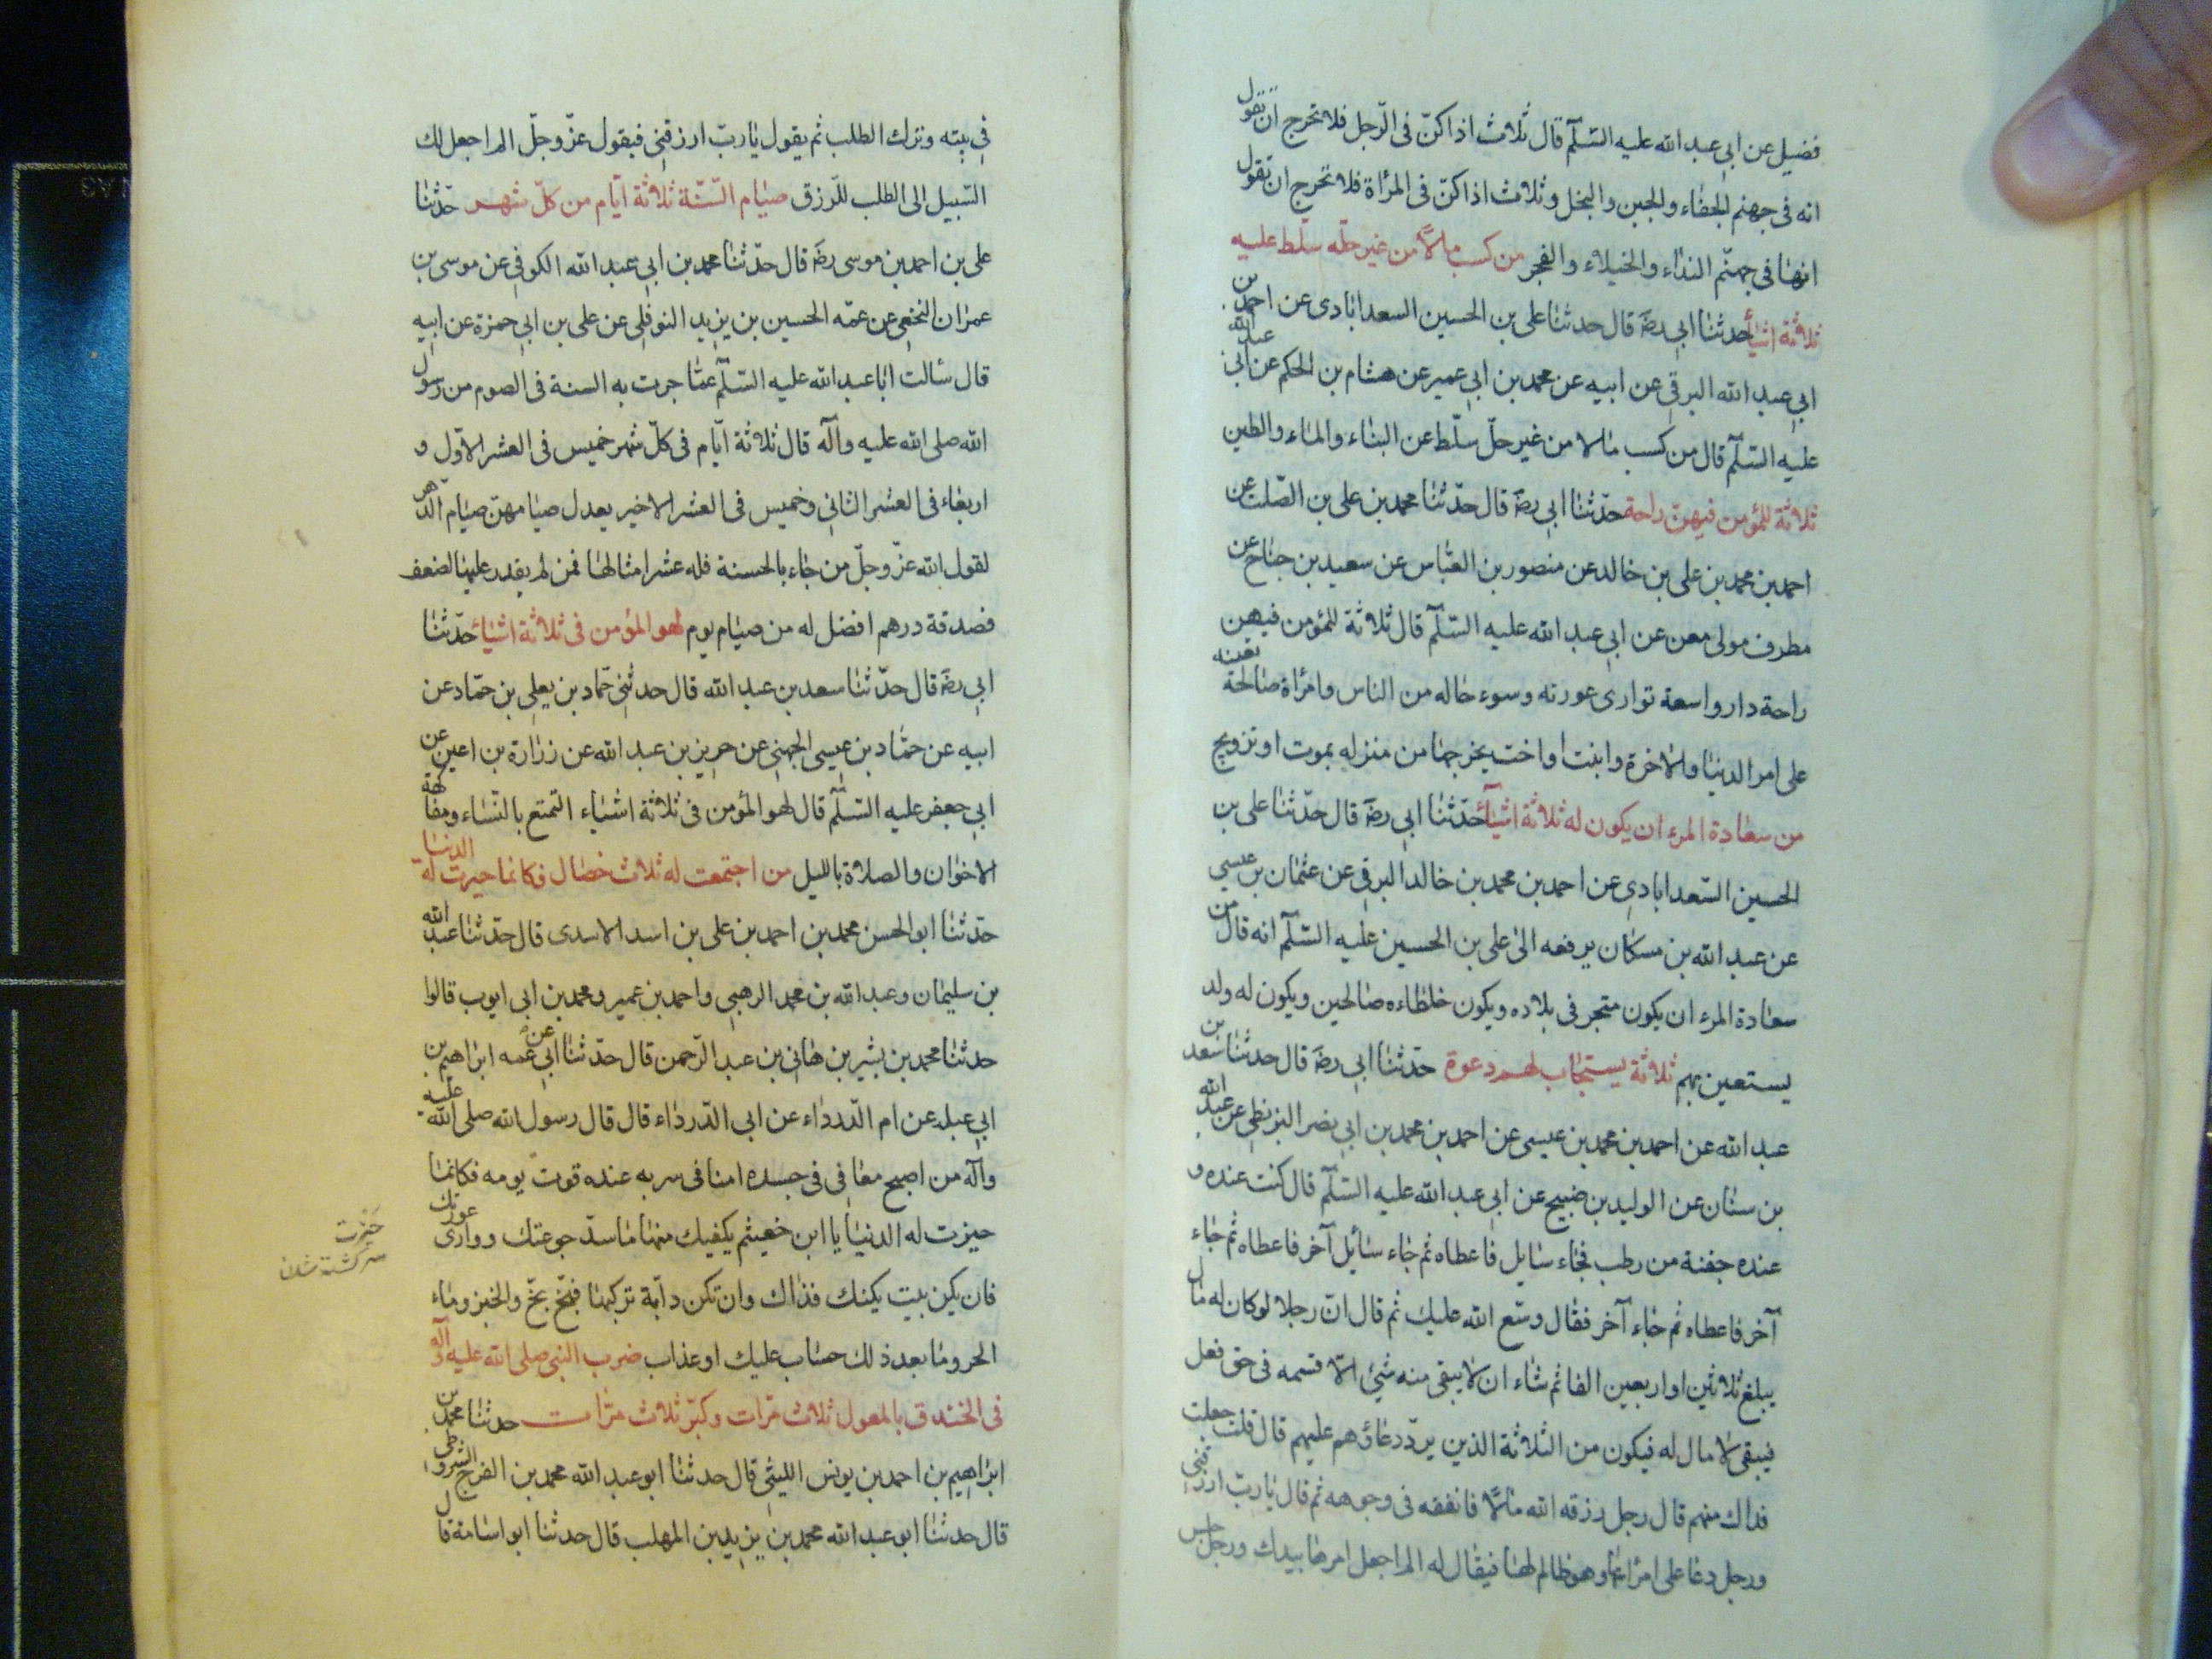 فضيل عن ابي عبد الله عليه السّلم قال ثلاث اذا كنّ فى الرّجل فلا تحرج ان تقول
انه فى جهنم الجفاء والجبن والبخل وثلاث اذا كنّ فى المرأة فلا تحرج ان تقول
انها فى جهنّم البذاء والخيلاء والفجر من كسب مالاً من غير حلّه سلّط عليه
ثلاثة اشيأ حدثنا ابي رضَ قال حدثنا على بن الحسين السعدابادى عن احمد بن
ابي عبد الله البرقى عن ابيه عن محمد بن ابي عمير عن هشام بن الحكم عن ابي عبد الله
عليه السّلم قال من كسب مالا من غير حلّ سلّط عن البناء والماء والطين
ثلاثة للمؤمن فيهنّ راحة حدّثنا ابي رضَ قال حدّثنا محمد بن على بن الصّلت عن
احمد بن محمد بن على بن خالد عن منصور بن العبّاس عن سعيد بن جناح عن
مطرف مولى معن عن ابي عبد الله عليه السّلم قال ثلاثة للمؤمن فيهن
راحة دار واسعة توارى عورته وسوء حاله من الناس وامرأة صالحة تعينه
على امر الدنيا والاخرة وابنت او اخت يخرجها من منزله بموت او تزويج
من سعادة المرء ان يكون له ثلاثة اشيآء حدّثنا ابي رضَ قال حدّثنا على بن
الحسين السّعدابادي عن احمد بن محمد بن خالد البرقى عن عثمان بن عيسى
عن عبد الله بن مسكان يرفعه الى على بن الحسين عليه السّلم انه قال من
سعادة المرء ان يكون متجر فى بلاده ويكون خلطاءه صالحين ويكون له ولد
يستعين بهم ثلاثة يستجاب لهم دعوة حدّثنا ابي رضَ قال حدثنا سعد بن
عبد الله عن احمد بن محمد بن عيسى عن احمد بن محمد بن ابي نصر البزنطى عن عبد الله
بن سنان عن الوليد بن صبيح عن ابي عبد الله عليه السّلم قال كنت عنده و
عنده جفنة من رطب فجاء سايل فاعطاه ثم جاء سائل آخر فاعطاه ثم جاء
آخر فاعطاه ثم جاء آخر فقال وسّع الله عليك ثم قال انّ رجلا لو كان له مال
يبلغ ثلاثين او اربعين الفا ثم شاء ان لا يبقى منه شئ الّا قسمه فى حق فعل
فيبقى لا مال له فيكون من الثلاثة الذين يردّ دعاؤهم عليهم قال قلت جعلت
فداك منهم قال رجل رزقه الله مالاً فانفقه فى وجوهه ثم قال يا ربّ ارزقنى
ورجل دعا على امرأته وهو ظالم لها فيقال له الم اجعل امرها بيدك ورجل جلس
فى بيته وترك الطلب ثم يقول يا ربّ ارزقنى فيقول عزّ وجلّ الم اجعل لك
السّبيل الى الطلب للّرزق صيام السّنّة ثلاثة ايّام من كلّ شهر حدّثنا
على بن احمد بن موسى رضَ قال حدّثنا محمد بن ابي عبد الله الكوفى عن موسى بن
عمران النخعى عن عمّه الحسين بن يزيد النوفلى عن على بن ابي حمزة عن ابيه
قال سئالت ابا عبد الله عليه السّلم عمّا جرت به السنة فى الصوم من رسول
الله صلى الله عليه وآله قال ثلاثة ايّام فى كلّ شهر خميس فى العشر الاوّل و
اربعاء فى العشر الثانى وخميس فى العشر الاخير يعدل صيامهنّ صيام الدّهر
لقول الله عزّ وجلّ من جاء بالحسنة فله عشر امثالها فمن لم يقدر عليها لضعف
فصدقة درهم افضل له من صيام يوم لهو المؤمن فى ثلاثة اشياء حدّثنا
ابي رضَ قال حدّثنا سعد بن عبد الله قال حدثنى حماد بن يعلى بن حمّاد عن
ابيه عن حمّاد بن عيسى الجهنى عن حريز بن عبد الله عن زرارة بن اعين عن
ابي جعفر عليه السّلم قال لهو المؤمن فى ثلاثة اشياء التمتع بالنّساء ومفاكهة
الاخوان والصلاة بالليل من اجتمعت له ثلاث خصال فكانما حيزت له الدنيا
حدّثنا ابو الحسن محمد بن احمد بن على بن اسد الاسدى قال حدّثنا عبد الله
بن سليمان وعبد الله بن محمد الرهبى واحمد بن عمير ومحمد بن ابى ايوب قالوا
حدثنا محمد بن بشير بن هانى بن عبد الرّحمن قال حدّثنا ابي عن عمه ابراهيم بن
ابي عبله عن ام الدّرداء عن ابى الدّرداء قال قال رسول الله صلى الله عليه
وآله من اصبح معافى فى جسده امنا فى سربه عنده قوت يومه فكانما
حيزت له الدنيا يا ابن خعيثم يكفيك منها ما سدّ جوعتك ووارى عورتك
فان يكن بيت يكنك فذاك وان تكن دابّة تركبها فبخّ بخّ والخبز وماء
الجر وما بعد ذلك حساب عليك او عذاب ضرب النبى صلى الله عليه وآله
فى الخندق بالمعول ثلاث مرّات وكبّر ثلاث مرّات حدثنا محمد بن
ابراهيم بن احمد بن يونس الليثى قال حدثنا ابو عبد الله محمد بن الفرج الشروطى
قال حدثنا ابو عبد الله محمد بن يزيد بن المهلب قال حدثنا ابو اسامة قال